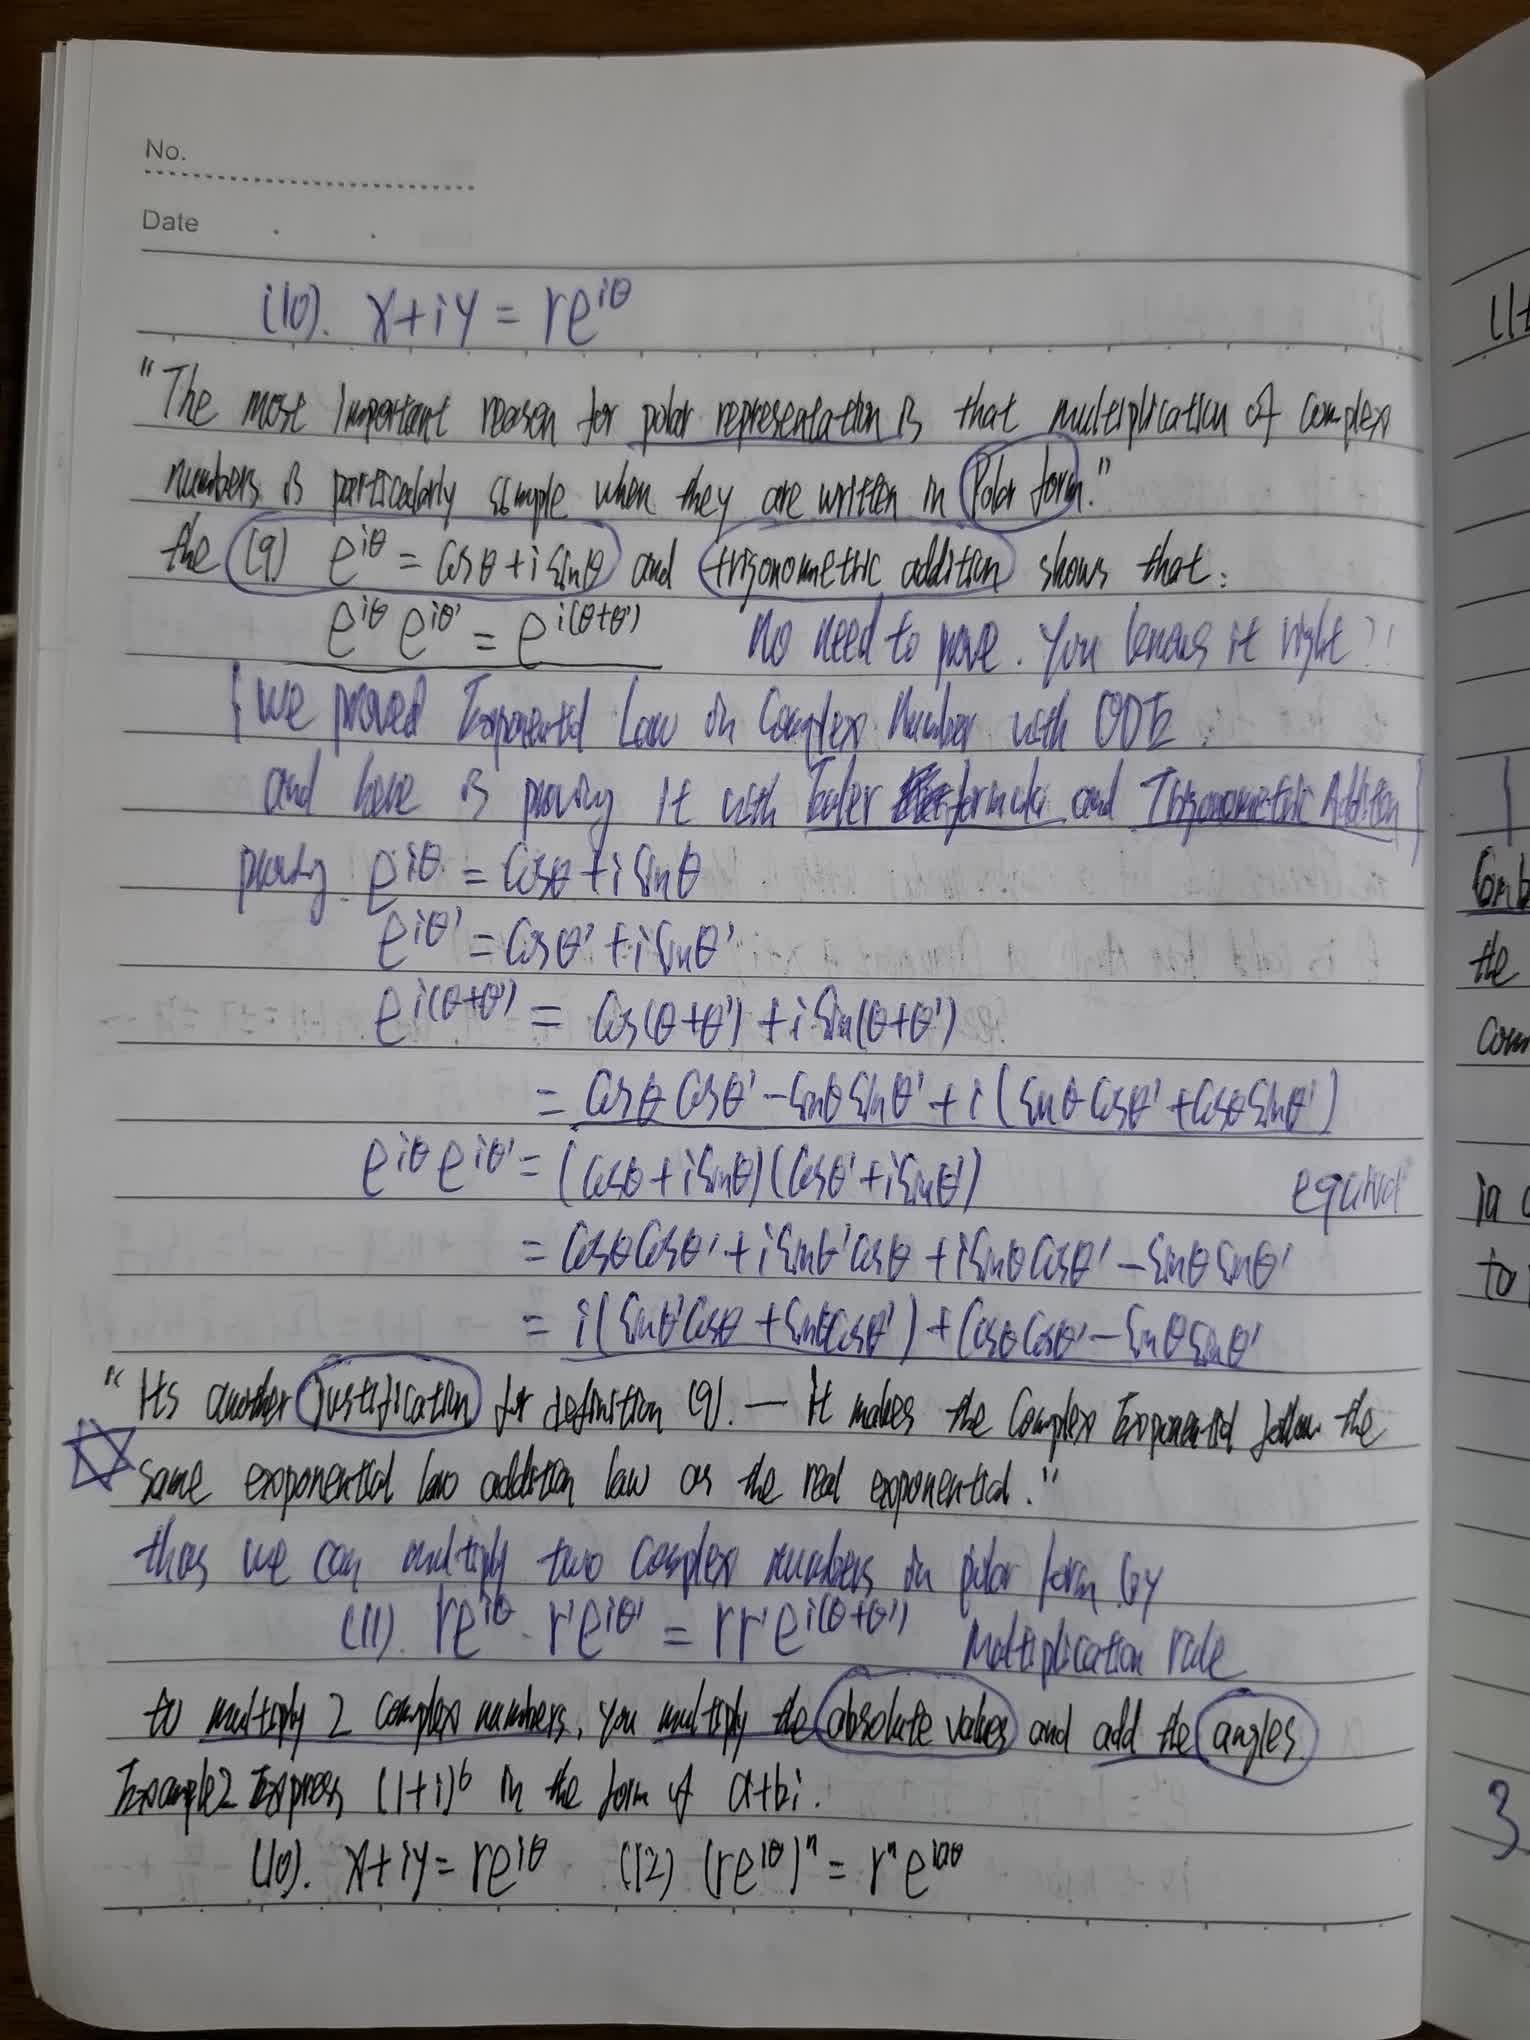 No.
Date
(10). x+iy = re^{iθ}
"The most important reason for polar representation is that multiplication of complex
numbers is particularly simple when they are written in Polar form."
the (9) e^{iθ} = cosθ + i sinθ and trigonometric addition shows that:
e^{iθ} e^{iθ'} = e^{i(θ+θ')} No need to prove. You know it right?!
{ we proved Exponential Law in Complex Number with ODE.
and here is proving it with Euler formula and Trigonometric Addition }
proving. e^{iθ} = cosθ + i sinθ
e^{iθ'} = cosθ' + i sinθ'
e^{i(θ+θ')} = cos(θ+θ') + i sin(θ+θ')
= cosθ cosθ' - sinθ sinθ' + i (sinθ cosθ' + cosθ sinθ')
e^{iθ} e^{iθ'} = (cosθ + i sinθ)(cosθ' + i sinθ') equival
= cosθ cosθ' + i sinθ' cosθ + i sinθ cosθ' - sinθ sinθ'
= i (sinθ' cosθ + sinθ cosθ') + cosθ cosθ' - sinθ sinθ'
"Its another justification for definition (9). — it makes the Complex Exponential follow the
same exoponential law addition law as the real exponential."
thus we can multiply two complex numbers in polar form by
(11). re^{iθ} · r'e^{iθ'} = rr'e^{i(θ+θ')} Multiplication rule
to multiply 2 complex numbers, you multiply the absolute values and add the angles.
Example2 Express (1+i)^6 in the form of a+bi.
(10). x+iy = re^{iθ} (12) (re^{iθ})^n = r^n e^{inθ}
(1+
Comb
the
com
in
to
3